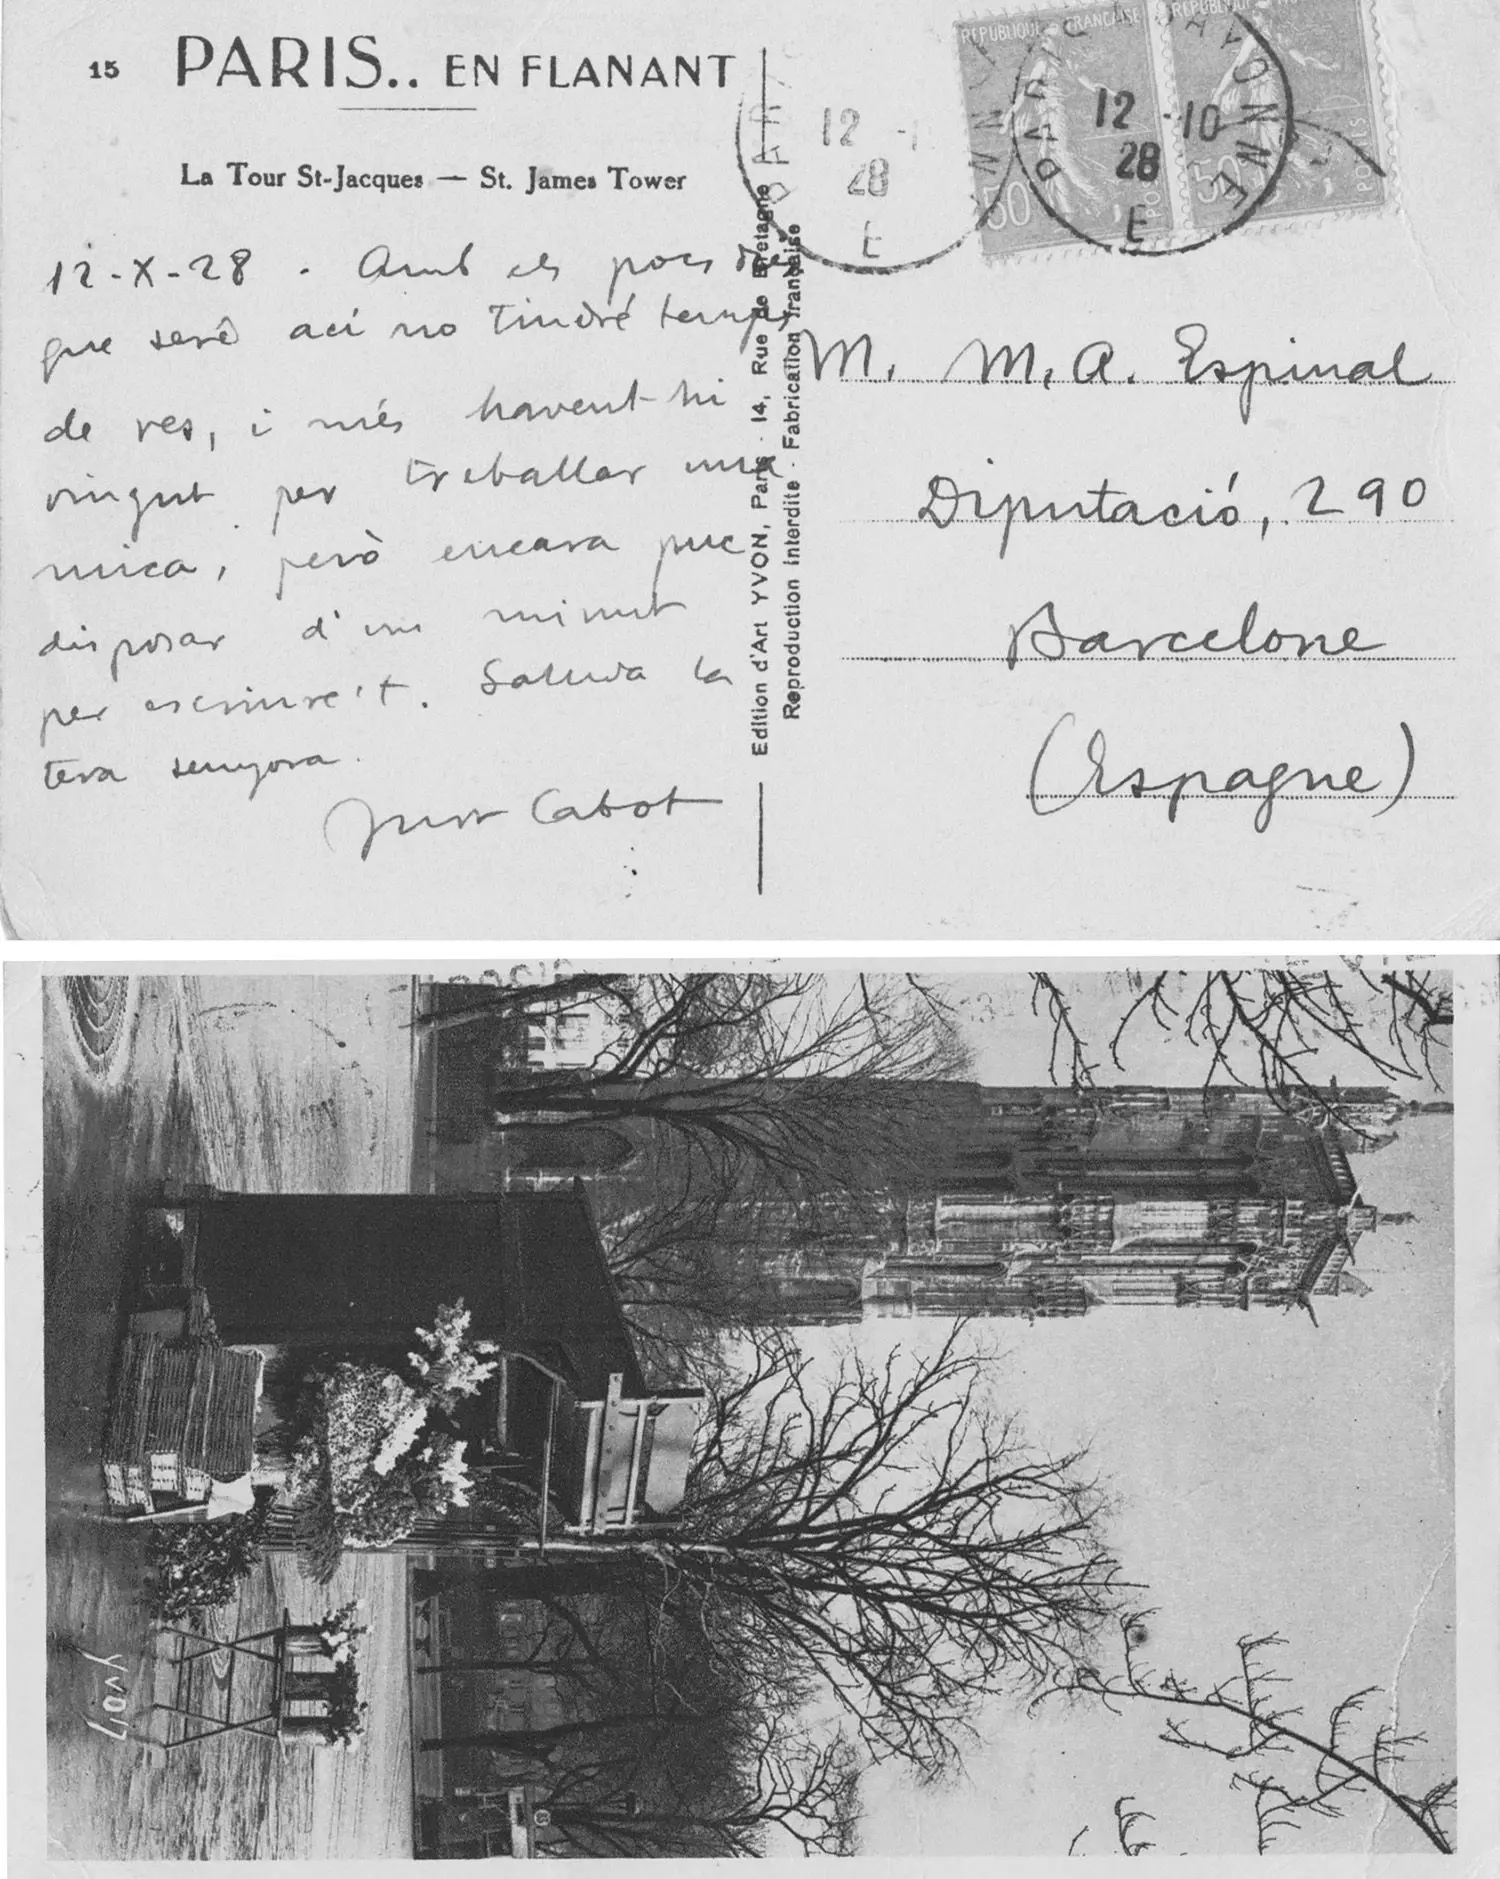 15 PARIS.. EN FLANANT
La Tour St-Jacques — St. James Tower
12-X-28. Amb els pocs dies
que seré ací no tindré temps
de res, i més havent-hi
vingut per treballar una
mica, però encara puc
disposar d'un minut
per escriure't. Saluda la
teva senyora.
Just Cabot
Edition d'Art YVON, Paris - 14, Rue de Bretagne
Reproduction Interdite - Fabrication française
REPUBLIQUE FRANÇAISE
50
POSTES
REPUBLIQUE
50
POSTES
PARIS
12 -10
28
E
12 -1
28
E
M. M. A. Espinal
Diputació, 290
Barcelone
(Espagne)
YVON